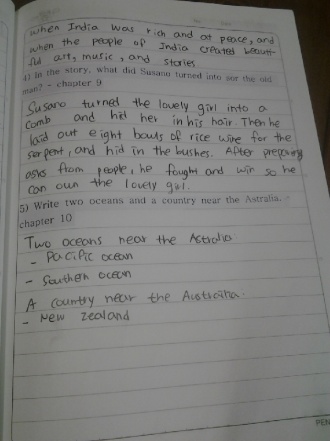 when India was rich and at peace, and
when the people of India created beauti-
ful art, music, and stories
4) In the story, what did Susano turned into sor the old
man? - chapter 9
Susano turned the lovely girl into a
comb and hid her in his hair. Then he
laid out eight bowls of rice wine for the
serpent, and hid in the bushes. After preparing
asks from people, he fought and win so he
can own the lovely girl.
5) Write two oceans and a country near the Astralia. -
chapter 10
Two oceans near the Astralia
- Pacific ocean
- Southern ocean
A country near the Australia.
- New zealand